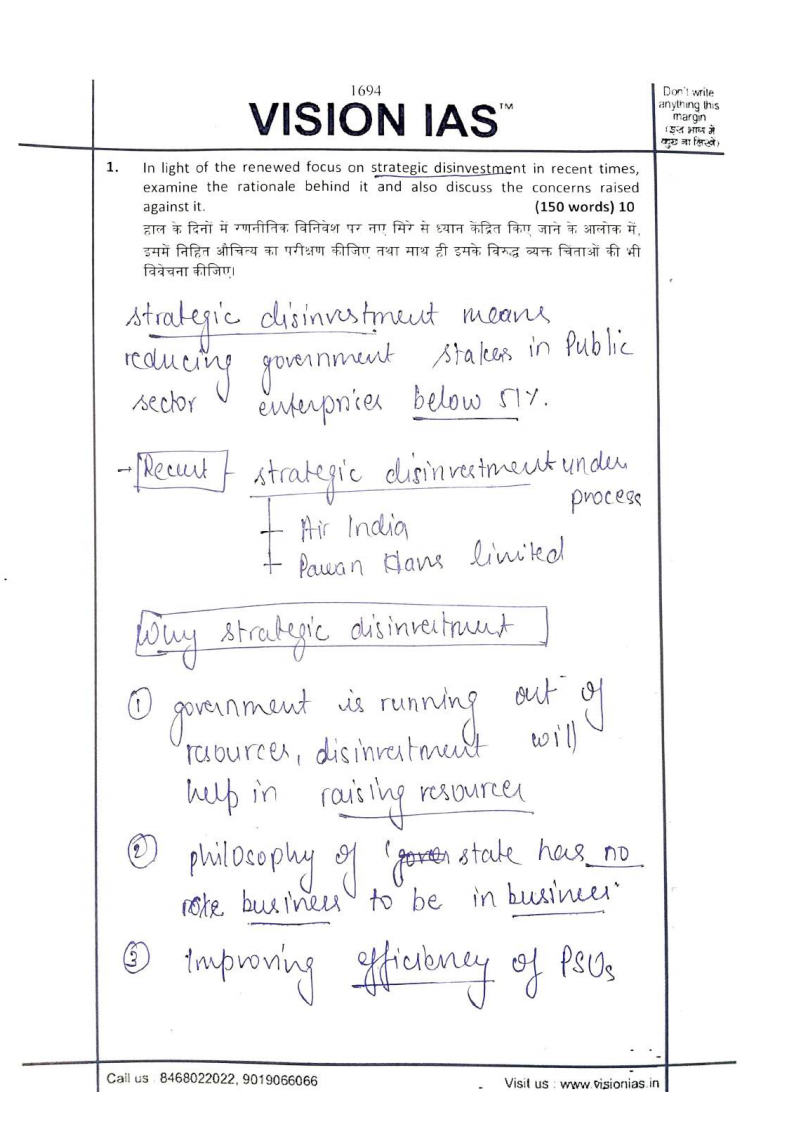 1694
VISION IAS™
Don't write
anything this
margin
(इस भाग में
कुछ ना लिखें)
1. In light of the renewed focus on strategic disinvestment in recent times,
examine the rationale behind it and also discuss the concerns raised
against it. (150 words) 10
हाल के दिनों में रणनीतिक विनिवेश पर नए सिरे से ध्यान केंद्रित किए जाने के आलोक में,
इसमें निहित औचित्य का परीक्षण कीजिए तथा साथ ही इसके विरुद्ध व्यक्त चिंताओं की भी
विवेचना कीजिए।
strategic disinvestment means
reducing government stakes in Public
sector enterprices below 51%.
→ Recent - strategic disinvestment under
process
Air India
Pawan Hans limited
Why strategic disinvestment
① government is running out of
resources, disinvestment will
help in raising resources
② philosophy of 'gover state has no
business to be in business'
③ Improving efficiency of PSUs
Call us : 8468022022, 9019066066
Visit us : www.visionias.in